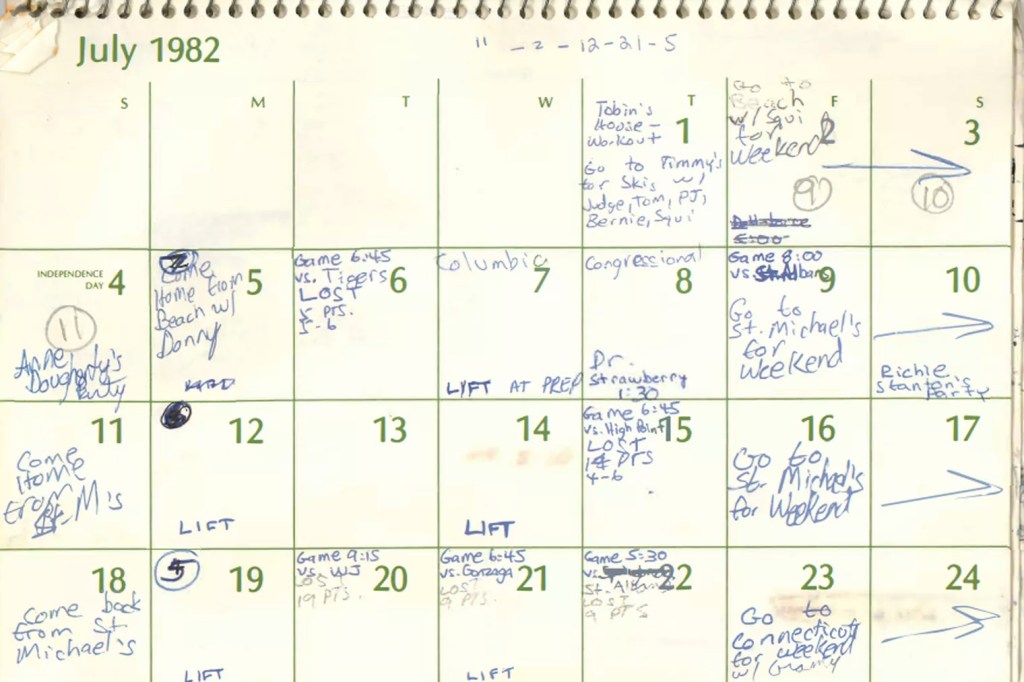 July 1982
" - 2 - 12-21-5
S M T W T F S
Tobin's
House -
Workout
1
Go to Timmy's
for Skis w/
Judge, Tom, PJ,
Bernie, Squi
Go to
Beach
w/ Squi
for
Weekend
2
9
5:00
3
10
INDEPENDENCE
DAY
4
11
Anne
Dougherty's
Party
5
Come
Home from
Beach w/
Donny
Game 6:45
vs. Tigers
6
LOST
5 pts.
5-6
Columbia
7
LIFT AT PREP
Congressional
8
Dr.
Strawberry
1:30
Game 8:00
vs. St. Albans
9
Go to
St. Michael's
for
Weekend
10
Richie
Stanton's
Party
11
Come
Home
from
St. M's
12
LIFT
13
14
LIFT
Game 6:45
vs. High Point
15
LOST
PTS
4-6
16
Go to
St. Michael's
for Weekend
17
18
Come back
from St.
Michael's
5
19
LIFT
Game 9:15
vs. WJ
20
LOST
19 PTS.
Game 6:45
vs. Gonzaga
21
LOST
9 PTS.
LIFT
Game 5:30
vs.
22
St. Albans
LOST
9 PTS
23
Go to
Connecticut
for weekend
w/ Grammy
24